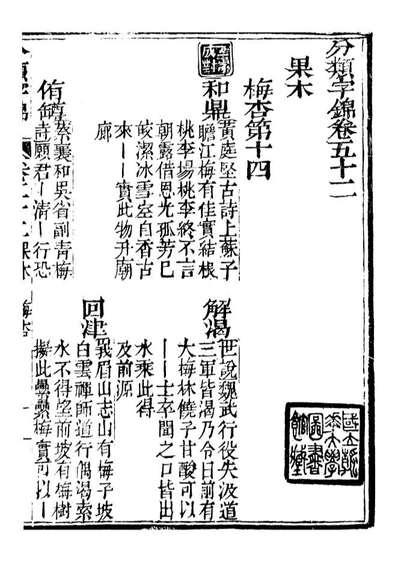 分類字錦卷五十二
果木
梅杏第十四
和鼎
黃庭堅古詩上蘇子
瞻江梅有佳實結根
桃李場桃李終不言
朝露借恩光孤芳忌
皎潔冰雪空自香古
來丨丨實此物升廟
廊
解渴
世說魏武行役失汲道
三軍皆渴乃令曰前有
大梅林饒子甘酸可以
丨丨士卒聞之口皆出
水乘此得
及前源
侑
蔡襄和吳省副青梅
詩願君丨清丨行恐
回津
峩眉山志山有梅子坡
白雲禪師道行偶渴索
水不得望前坡有梅樹
此梅實可以丨
果木 梅杏